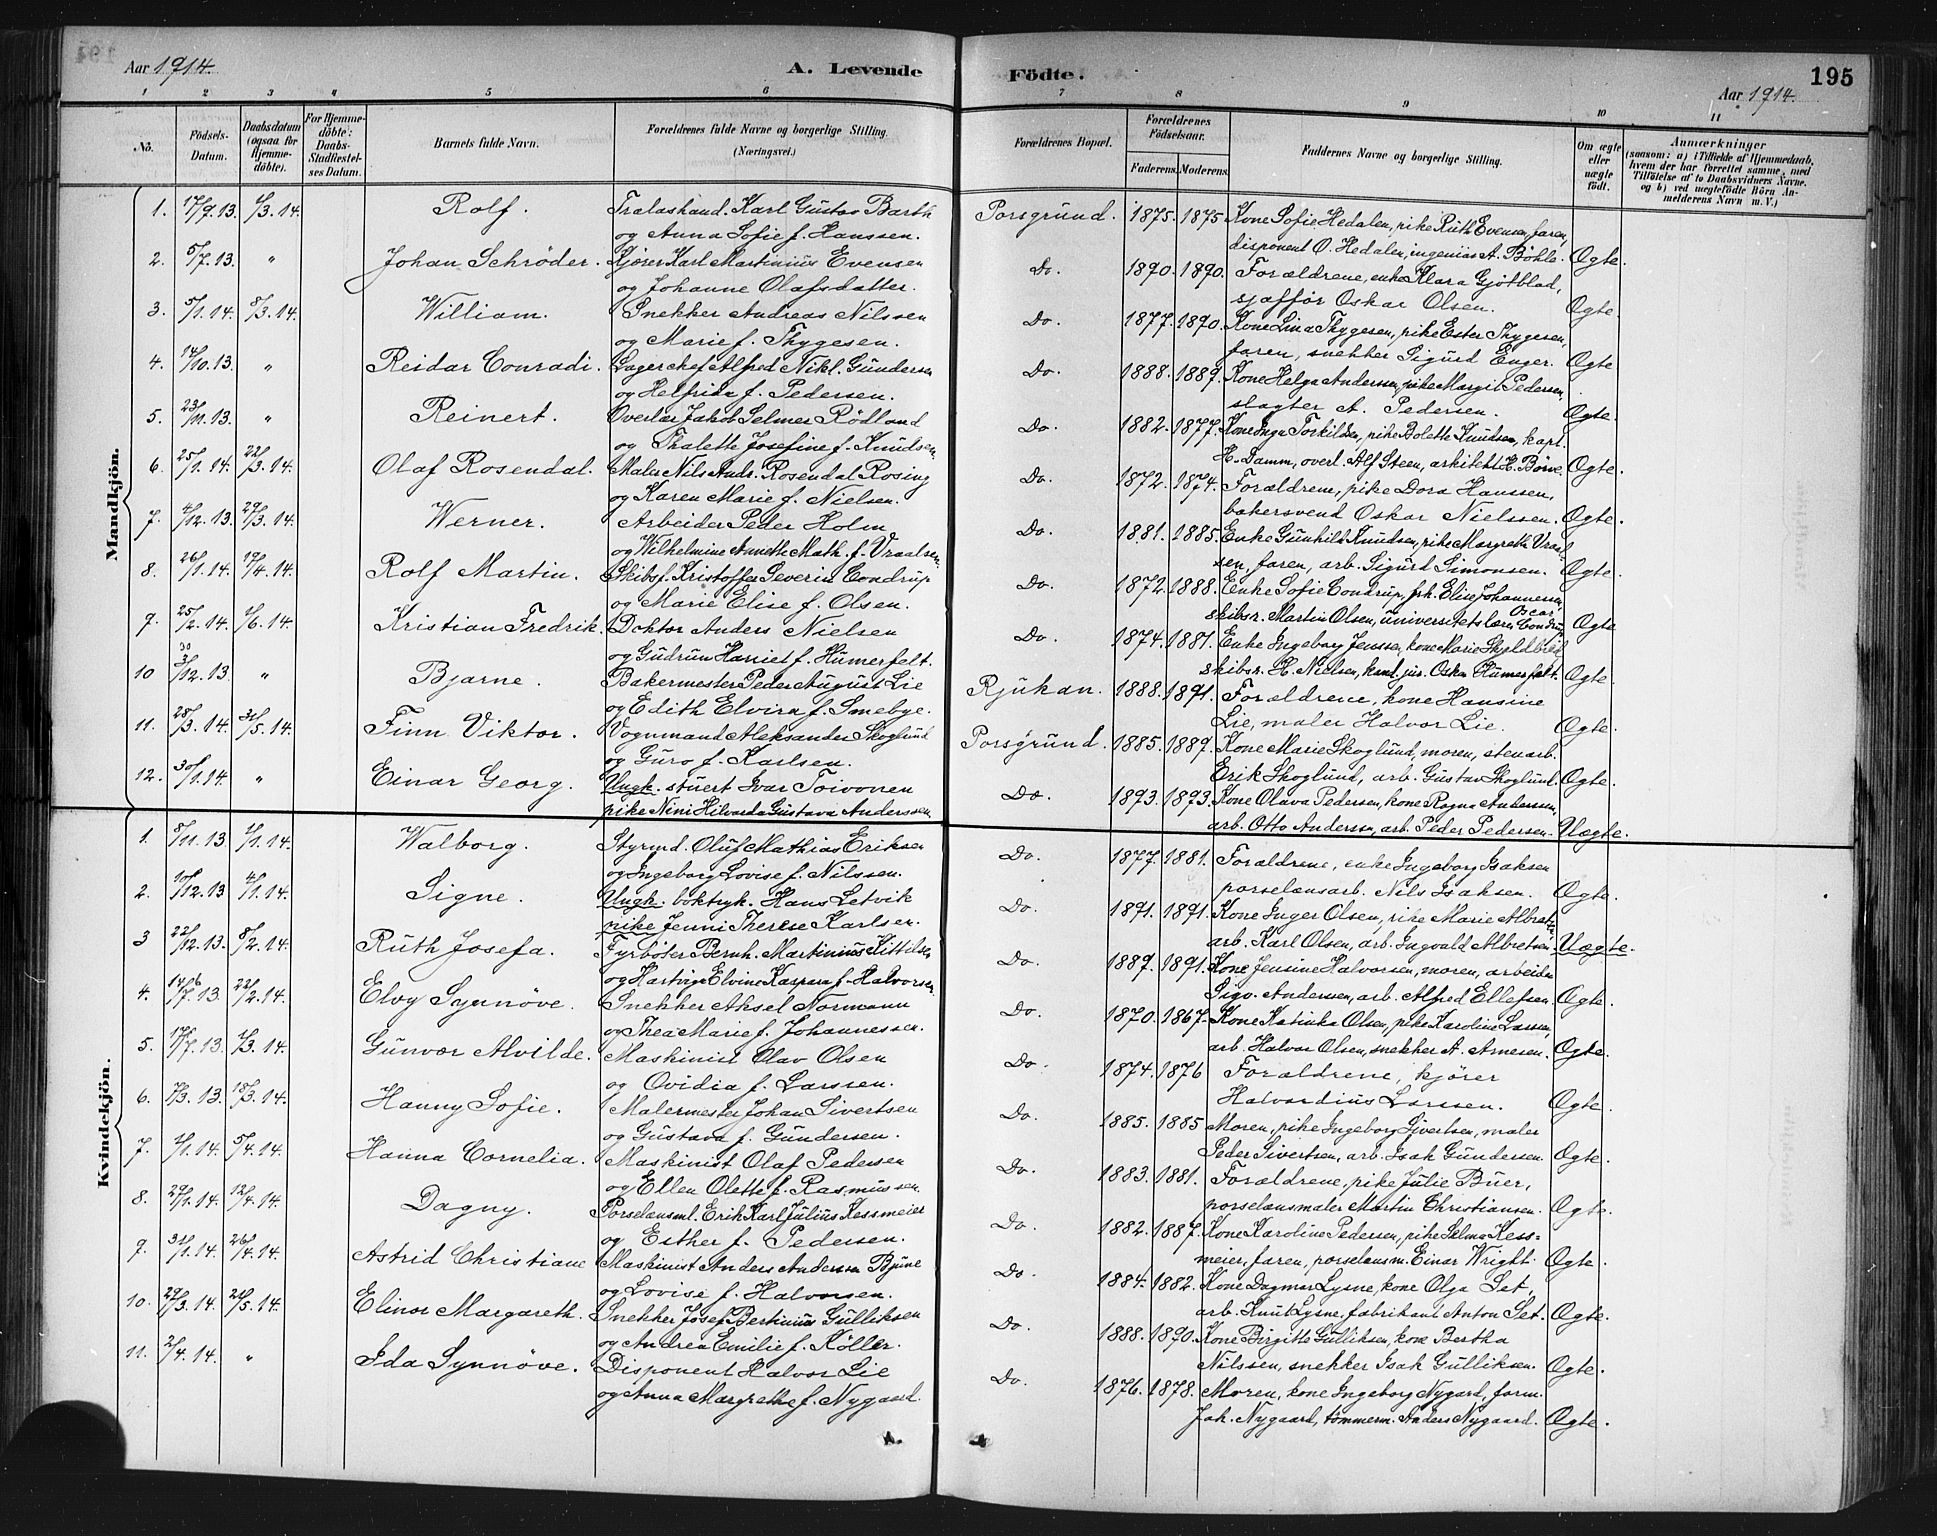 Aar 1914. A. Levende Födte. 195
Aar 1914.
1 2 3 4 5 6 7 8 9 10 11
No. Födsels-Datum. Daabsdatum (ogsaa for Hjemmedöbte). For Hjemmedöbte: Daabs-Stadfæstelses Datum. Barnets fulde Navn. Forældrenes fulde Navne og borgerlige Stilling. (Næringsvei.) Forældrenes Bopæl. Forældrenes Födselsaar. Faderens. Moderens. Faddernes Navne og borgerlige Stilling. Om ægte eller uægte födt. Anmærkninger (saasom: a) i Tilfælde af Hjemmedaab, hvem der har forrettet samme, med Tilföielse af to Daabsvidners Navne. og b) ved uægtefödte Börn Anmelderens Navn m. V.)
Mandkjön.
1. 17/9.13. 1/3.14. Rolf. Tralashand. Karl Gustav Barth Porsgrund. 1875. 1875. Kone Sofie Hedalen, pike Ruth Evensen, faren,
og Anna Sofie f. Hanssen. disponent O. Hedalen, ingeniör A. Böhle. Ægte.
2. 5/7.13. " Johan Schröder. Kjörer Karl Martinius Evensen Do. 1890. 1890. Forældrene, enke Klara Gjötblad,
og Johanne Olafsdatter. sjafför Oskar Olsen. Ægte.
3. 5/1.14. 8/3.14. William. Snekker Andreas Nilssen Do. 1877. 1890. Kone Lina Thygesen, pike Ester Thygesen,
og Marie f. Thygesen. faren, snekker Sigurd Enger. Ægte.
4. 14/10.13. " Reidar Conradi. Lagerchef Alfred Nikl. Gundersen Do. 1888. 1889. Kone Helga Anderssen, pike Margit Pedersen,
og Helfride f. Pedersen. slagter A. Pedersen. Ægte.
5. 23/11.13. " Reinert. Overlær Jakob Selmer Rödland Do. 1882. 1877. Kone Inga Torkildsen, pike Bolette Knudsen, kapt.
og Thalette Josefine f. Knudsen. H. Damm, overl. Alf Steen, arkitekt H. Börve. Ægte.
6. 25/1.14. 22/3.14. Olaf Rosendal. Maler Nils Andr. Rosendal Rosing Do. 1872. 1874. Forældrene, pike Dora Hanssen,
og Karen Marie f. Nielsen. bakersvend Oskar Nielssen. Ægte.
7. 4/12.13. 29/3.14. Werner. Arbeider Peder Holm Do. 1881. 1885. Enke Gunhild Knudsen, pike Margrethe Vraal
og Wilhelmine Annette Math. f. Vraalsen. sen, faren, arb. Sigurd Simonsen. Ægte.
8. 26/1.14. 19/4.14. Rolf Martin. Skibsf. Kristoffer Severin Condrup Do. 1872. 1888. Enke Sofie Condrup, frk. Elise Johannessen,
og Marie Elise f. Olsen. skibsr. Martin Olsen, universitetslærer Oscar Condrup Ægte
9. 25/2.14. 1/6.14. Kristian Fredrik. Doktor Anders Nielsen Do. 1874. 1881. Enke Ingeborg Jenssen, kone Marie Skyldbred
og Gudrun Harriet f. Humerfelt. skibsr. H. Nielsen, kand. jur. Oskar Humerfelt. Ægte.
10 /12.13. " Bjarne. Bakermester Peder August Lie Rjukan. 1888. 1891. Forældrene, kone Hansine
og Edith Elvira f. Smebye. Lie, maler Halvor Lie. Ægte.
11. 28/3.14. 31/5.14. Finn Viktor. Vognmand Aleksander Skoglund Porsgrund. 1885. 1889. Kone Marie Skoglund, moren, stenarb.
og Guro f. Karlsen. Erik Skoglund, arb. Gustav Skoglund. Ægte.
12. 30/1.14. " Einar Georg. Ungk. stuert Ivar Toivonen Do. 1893. 1893. Kone Olava Pedersen, kone Ragna Anderssen,
pike Nini Hilvarda Gustava Anderssen. arb. Otto Anderssen, arb. Peder Pedersen. Uægte.
Kvindekjön.
1. 8/11.13. 1/1.14. Walborg. Styrmd. Oluf Mathias Eriksen Do. 1877. 1881. Forældrene, enke Ingeborg Isaksen
og Ingeborg Lovise f. Nilssen. porselænsarb. Nils Isaksen. Ægte.
2. 10/12.13 4/1.14. Signe. Ungk. boktryk. Hans Letvik Do. 1891. 1891. Kone Inger Olsen, pike Marie Albret
pike Jenni Therese Karlsen. arb. Karl Olsen, arb. Ingvald Albretsen. Uægte.
3 22/12.13. 8/2.14. Ruth Josefa. Fyrböter Bernh. Martinius Kittilsen Do. 1889. 1891. Kone Jensine Halvorsen, moren, arbeider
og Hartvige Elvine Kaspara f. Halvorsen. Sigv. Anderssen, arb. Alfred Ellefsen. Ægte.
4. 14/7.13. 22/2.14. Elvy Synnöve. Snekker Aksel Normann Do. 1870. 1867. Kone Katinka Olsen, pike Karoline Larssen,
og Thea Marie f. Johannessen. arb. Halvor Olsen, snekker A. Arnesen. Ægte.
5. 17/7.13. 1/3.14. Gunvor Alvilde. Maskinist Olav Olsen Do. 1874. 1876 Forældrene, kjörer
og Ovidia f. Larssen. Halvardius Larssen. Ægte.
6. 7/3.13. 18/3.14. Hanny Sofie. Malermester Johan Sivertsen Do. 1885. 1885 Moren, pike Ingeborg Sivertsen, maler
og Gustava f. Gundersen. Peder Sivertsen, arb. Isak Gundersen. Ægte.
7. 1/1.14. 5/4.14. Hanna Cornelia. Maskinist Olaf Pedersen Do. 1883. 1881. Forældrene, pike Julie Buer,
og Ellen Olette f. Rasmussen. porselænsmaler Martin Christiansen. Ægte.
8. 29/1.14. 12/4.14. Dagny. Porselænsml. Erik Karl Julius Kessmeier Do. 1882. 1887. Kone Karoline Pedersen, pike Selma Kess=
og Esther f. Pedersen. meier, faren, porselænsm. Einar Wright. Ægte.
9. 31/1.14. 26/4.14. Astrid Christiane Maskinist Anders Andersen Bjune Do. 1884. 1882. Kone Dagmar Lysne, kone Olga Set,
og Lovise f. Halvorsen. arb. Knut Lysne, fabrikant Anton Set. Ægte.
10. 29/3.14. 21/5.14. Elinor Margareth. Snekker Josef Bertinius Gulliksen Do. 1888. 1890. Kone Birgitte Gulliksen, kone Bertha
og Andrea Emilie f. Köller. Nilssen, snekker Isak Gulliksen. Ægte.
11. 2/4.14. " Ida Synnöve. Disponent Halvor Lie Do. 1876. 1878. Moren, kone Ingeborg Nygard, form.
og Anna Margrethe f. Nygaard. Joh. Nygaard, tömmerm. Anders Nygaard. Ægte.